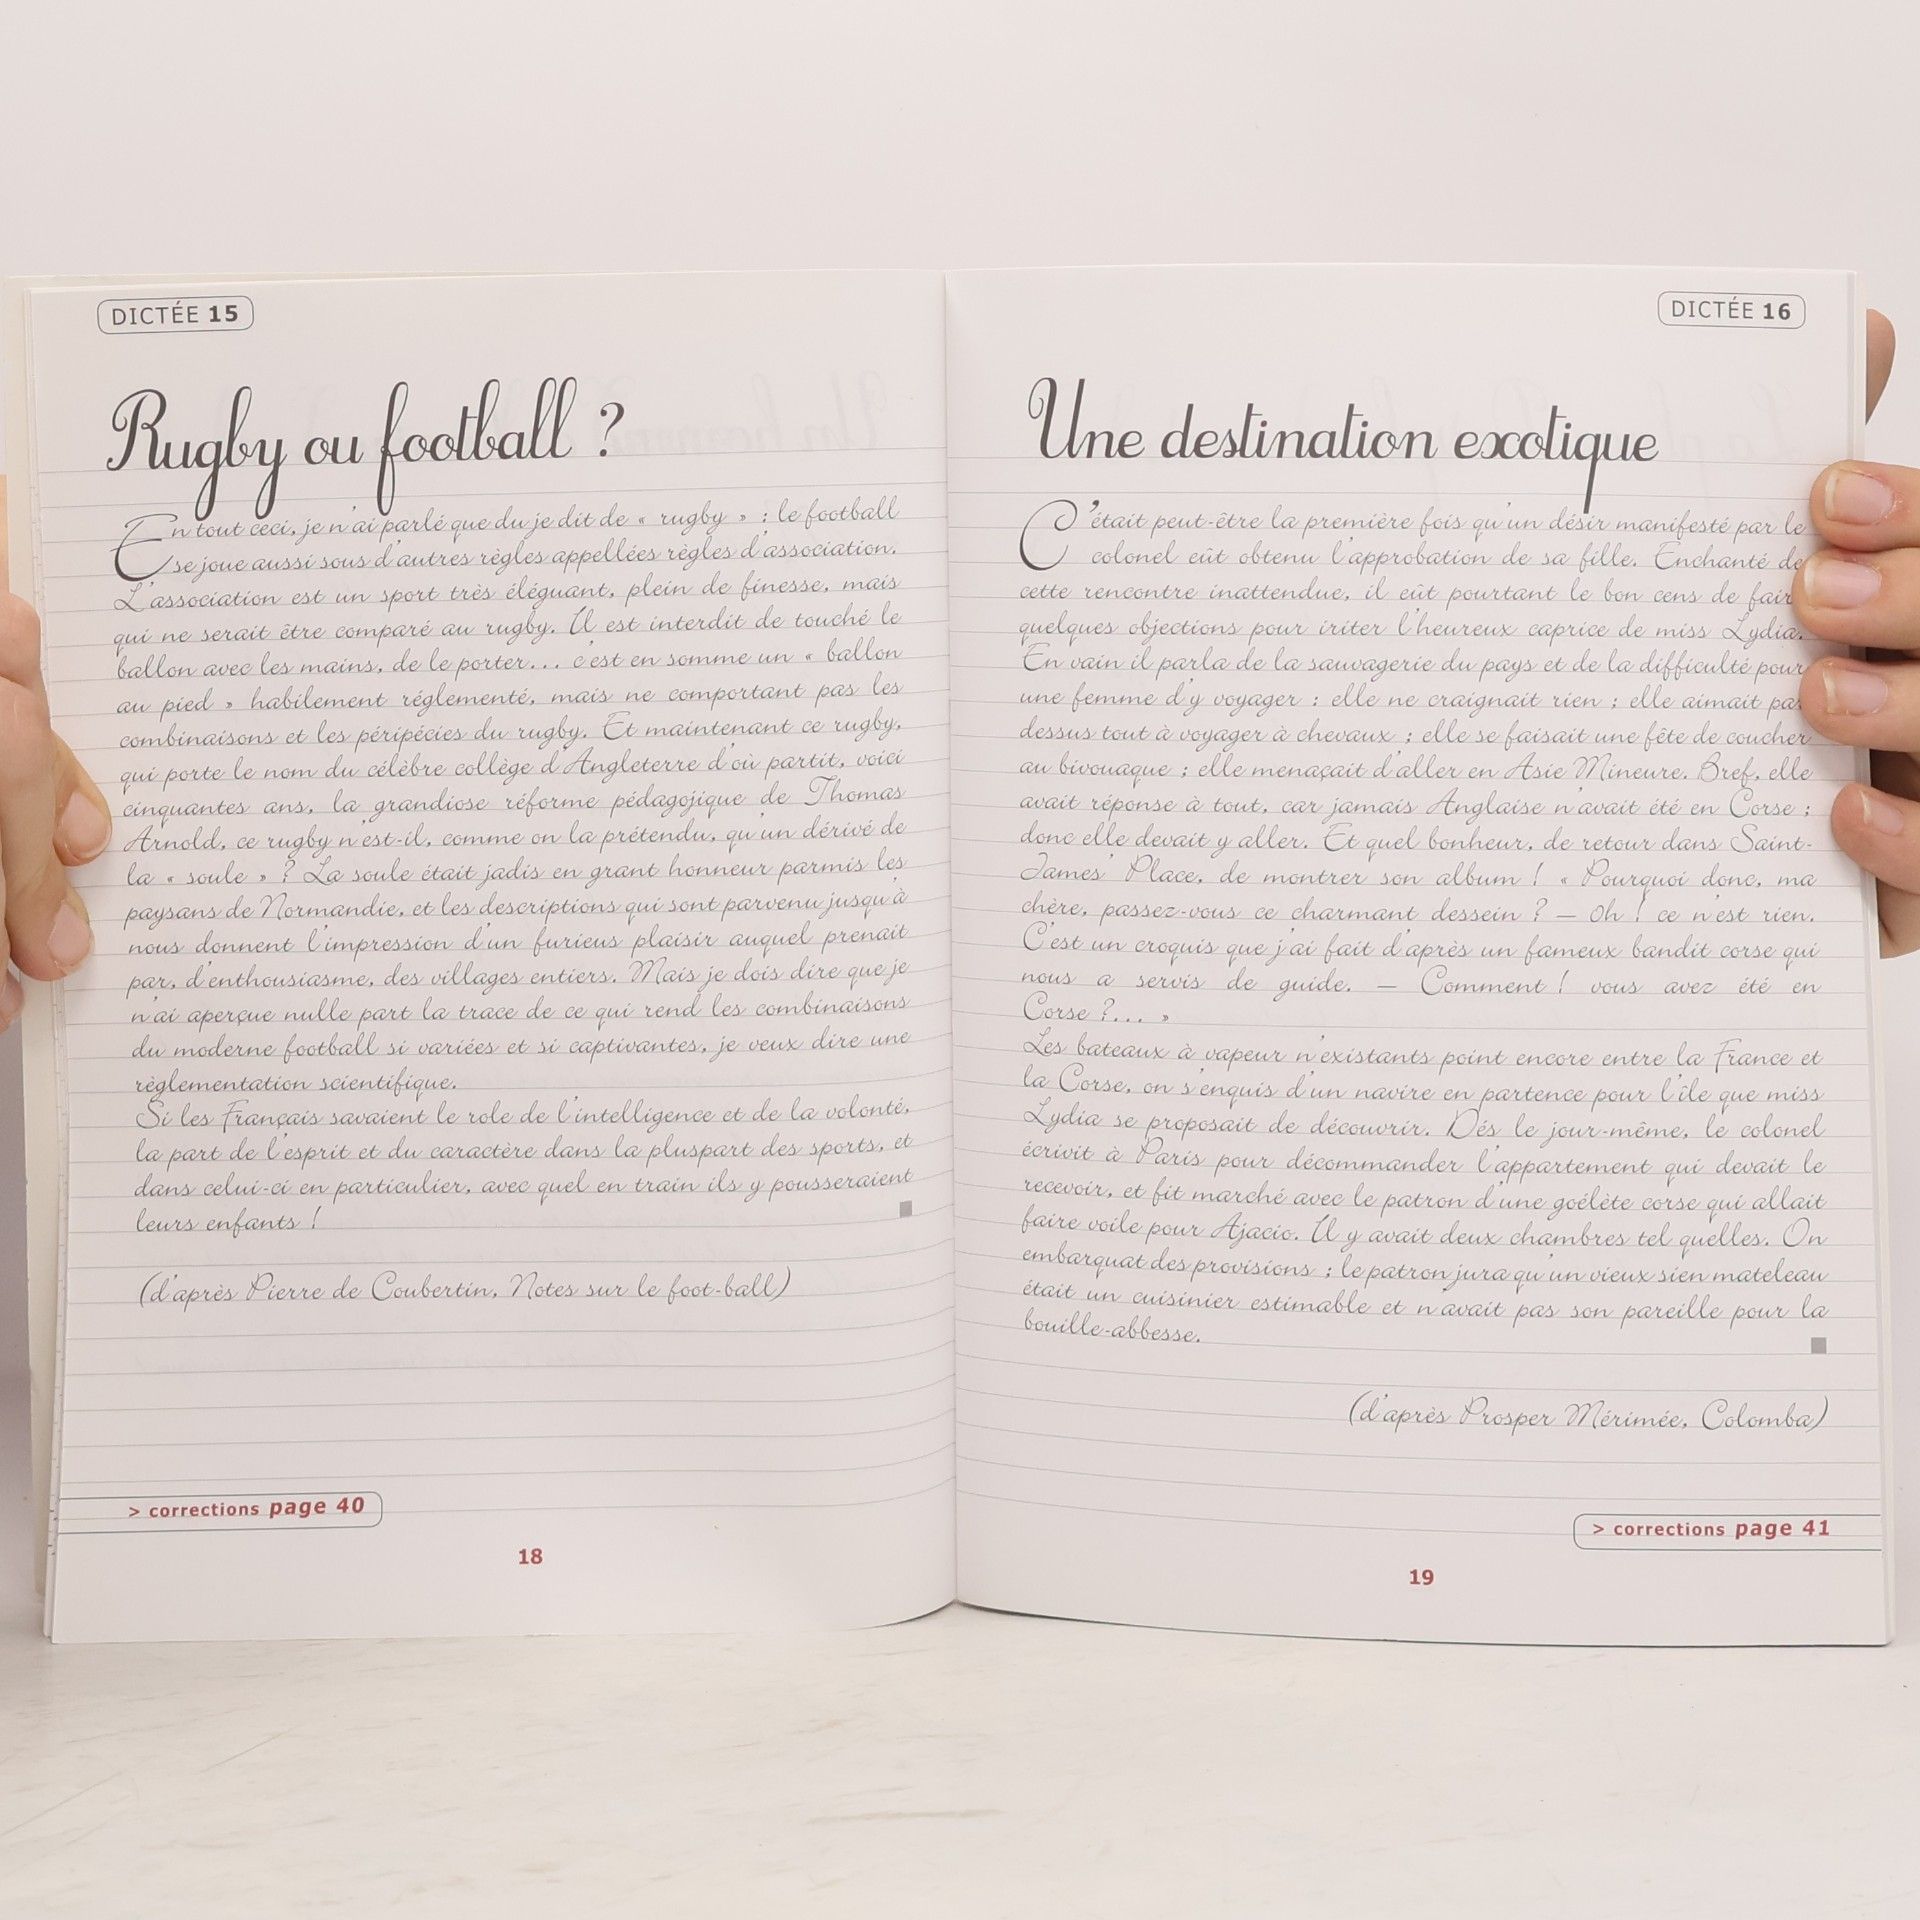 DICTÉE 15
Rugby ou football ?
En tout ceci, je n'ai parlé que du je dit de « rugby » ; le football
se joue aussi sous d'autres règles appellées règles d'association.
L'association est un sport très éléguant, plein de finesse, mais
qui ne serait être comparé au rugby. Il est interdit de touché le
ballon avec les mains, de le porter... c'est en somme un « ballon
au pied » habilement réglementé, mais ne comportant pas les
combinaisons et les péripécies du rugby. Et maintenant ce rugby,
qui porte le nom du célèbre collège d'Angleterre d'où partit, voici
cinquantes ans, la grandiose réforme pédagojique de Thomas
Arnold, ce rugby n'est-il, comme on la prétendu, qu'un dérivé de
la « soule » ? La soule était jadis en grant honneur parmis les
paysans de Normandie, et les descriptions qui sont parvenu jusqu'à
nous donnent l'impression d'un furieus plaisir auquel prenait
par, d'enthousiasme, des villages entiers. Mais je dois dire que je
n'ai aperçue nulle part la trace de ce qui rend les combinaisons
du moderne football si variées et si captivantes, je veux dire une
règlementation scientifique.
Si les Français savaient le role de l'intelligence et de la volonté,
la part de l'esprit et du caractère dans la pluspart des sports, et
dans celui-ci en particulier, avec quel en train ils y pousseraient
leurs enfants !
(d'après Pierre de Coubertin, Notes sur le foot-ball)
> corrections page 40
18
DICTÉE 16
Une destination exotique
C'était peut-être la première fois qu'un désir manifesté par le
colonel eût obtenu l'approbation de sa fille. Enchanté de
cette rencontre inattendue, il eût pourtant le bon cens de fair
quelques objections pour iriter l'heureux caprice de miss Lydia.
En vain il parla de la sauvagerie du pays et de la difficulté pour
une femme d'y voyager : elle ne craignait rien ; elle aimait par
dessus tout à voyager à chevaux ; elle se faisait une fête de coucher
au bivouaque ; elle menaçait d'aller en Asie Mineure. Bref, elle
avait réponse à tout, car jamais Anglaise n'avait été en Corse ;
donc elle devait y aller. Et quel bonheur, de retour dans Saint-
James' Place, de montrer son album ! « Pourquoi donc, ma
chère, passez-vous ce charmant dessein ? — Oh ! ce n'est rien.
C'est un croquis que j'ai fait d'après un fameux bandit corse qui
nous a servis de guide. — Comment ! vous avez été en
Corse ?... »
Les bateaux à vapeur n'existants point encore entre la France et
la Corse, on s'enquis d'un navire en partence pour l'île que miss
Lydia se proposait de découvrir. Dés le jour-même, le colonel
écrivit à Paris pour décommander l'appartement qui devait le
recevoir, et fit marché avec le patron d'une goélète corse qui allait
faire voile pour Ajacio. Il y avait deux chambres tel quelles. On
embarquat des provisions ; le patron jura qu'un vieux sien mateleau
était un cuisinier estimable et n'avait pas son pareille pour la
bouille-abbesse.
(d'après Prosper Mérimée, Colomba)
> corrections page 41
19